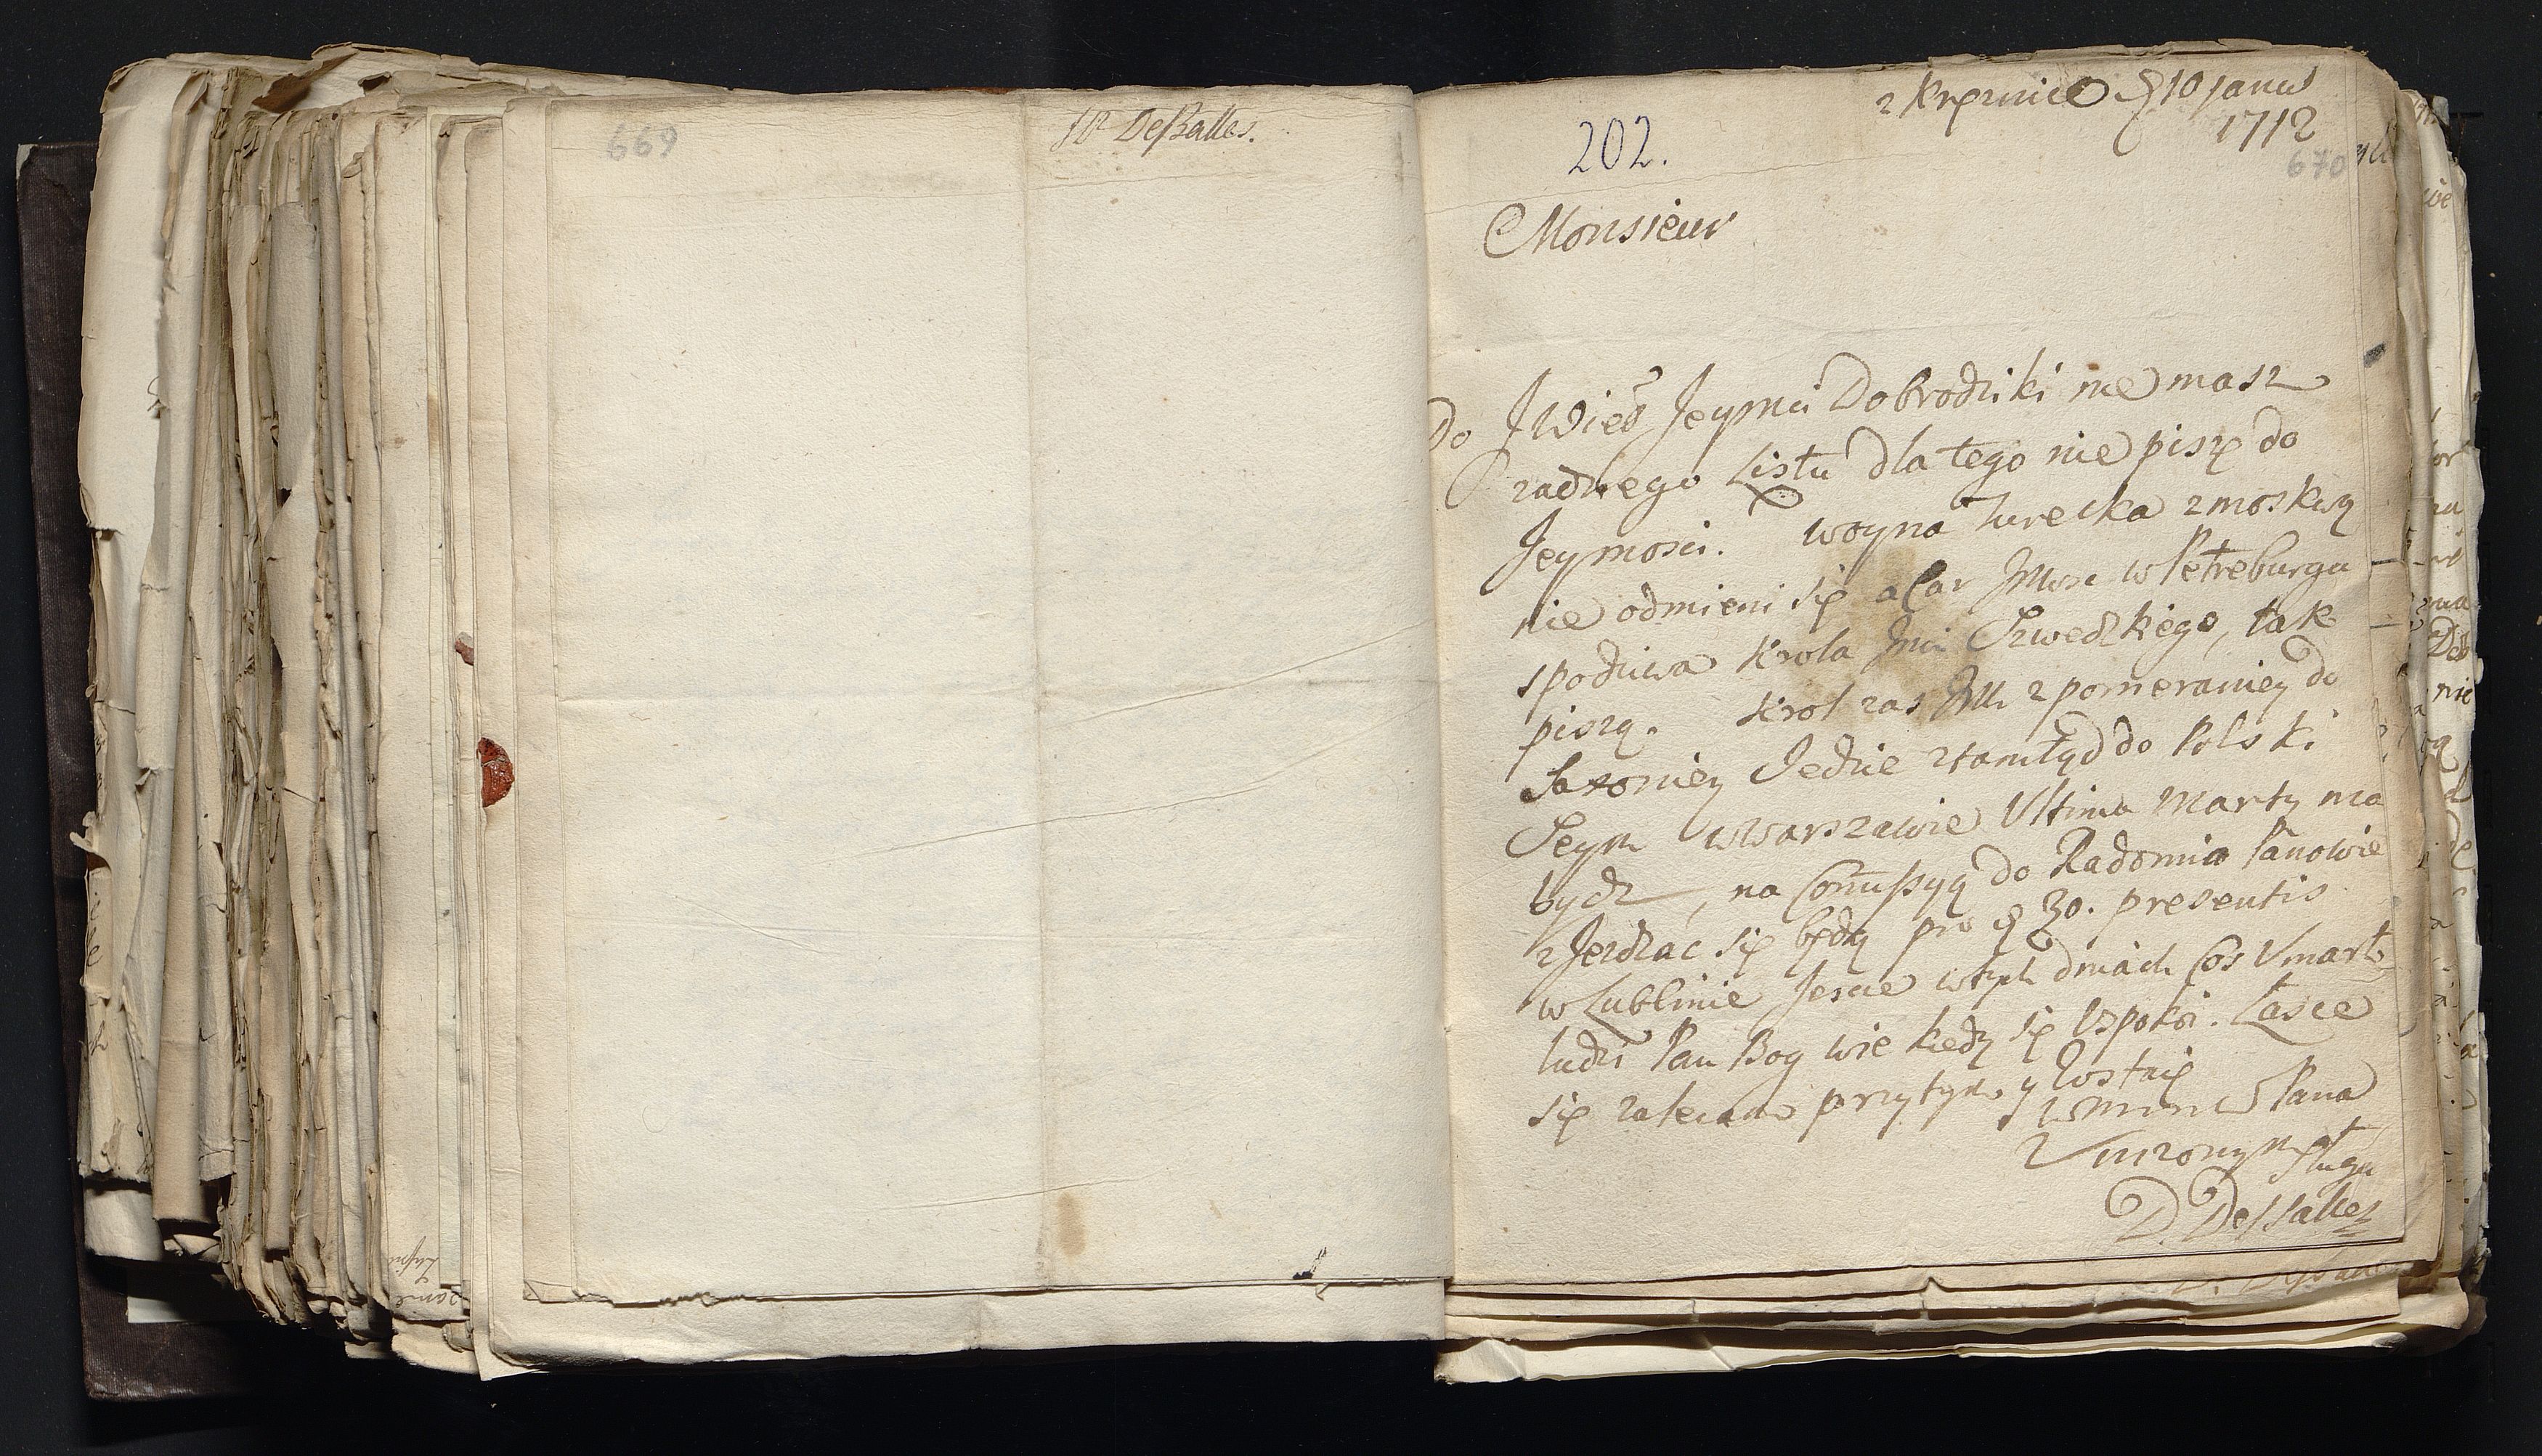 669
Deßalles.
z Krępnice d 10 janua
1712
202.
670
Monsieur
Do JWied Jeymci Dobrodziki nie masz
zadnego Listu dla tego nie piszę do
Jeymosci. woyna turecka z moskwą
nie odmieni się a Car JMosc w Petreburgu
spodziwa Krola Jmci Szwedzkiego, tak
piszą. Krol zas JM z pomeraniey do
Saxoniey Jedzie ztamtąd do Polski
Seym w Warszawie Ultima Marty ma
bydz, na Comußyą do Radomia Panowie
zJezdzac się będą pro d 30. presentis
w Lublinie Jescie w tych dniach Cos Vmarło
ludzi Pan Bog wie kiedy się Uspokoi. Łasce
się zalecam przytym y Zostaię
Pana
Vnizonym sługą
D. Dessalles